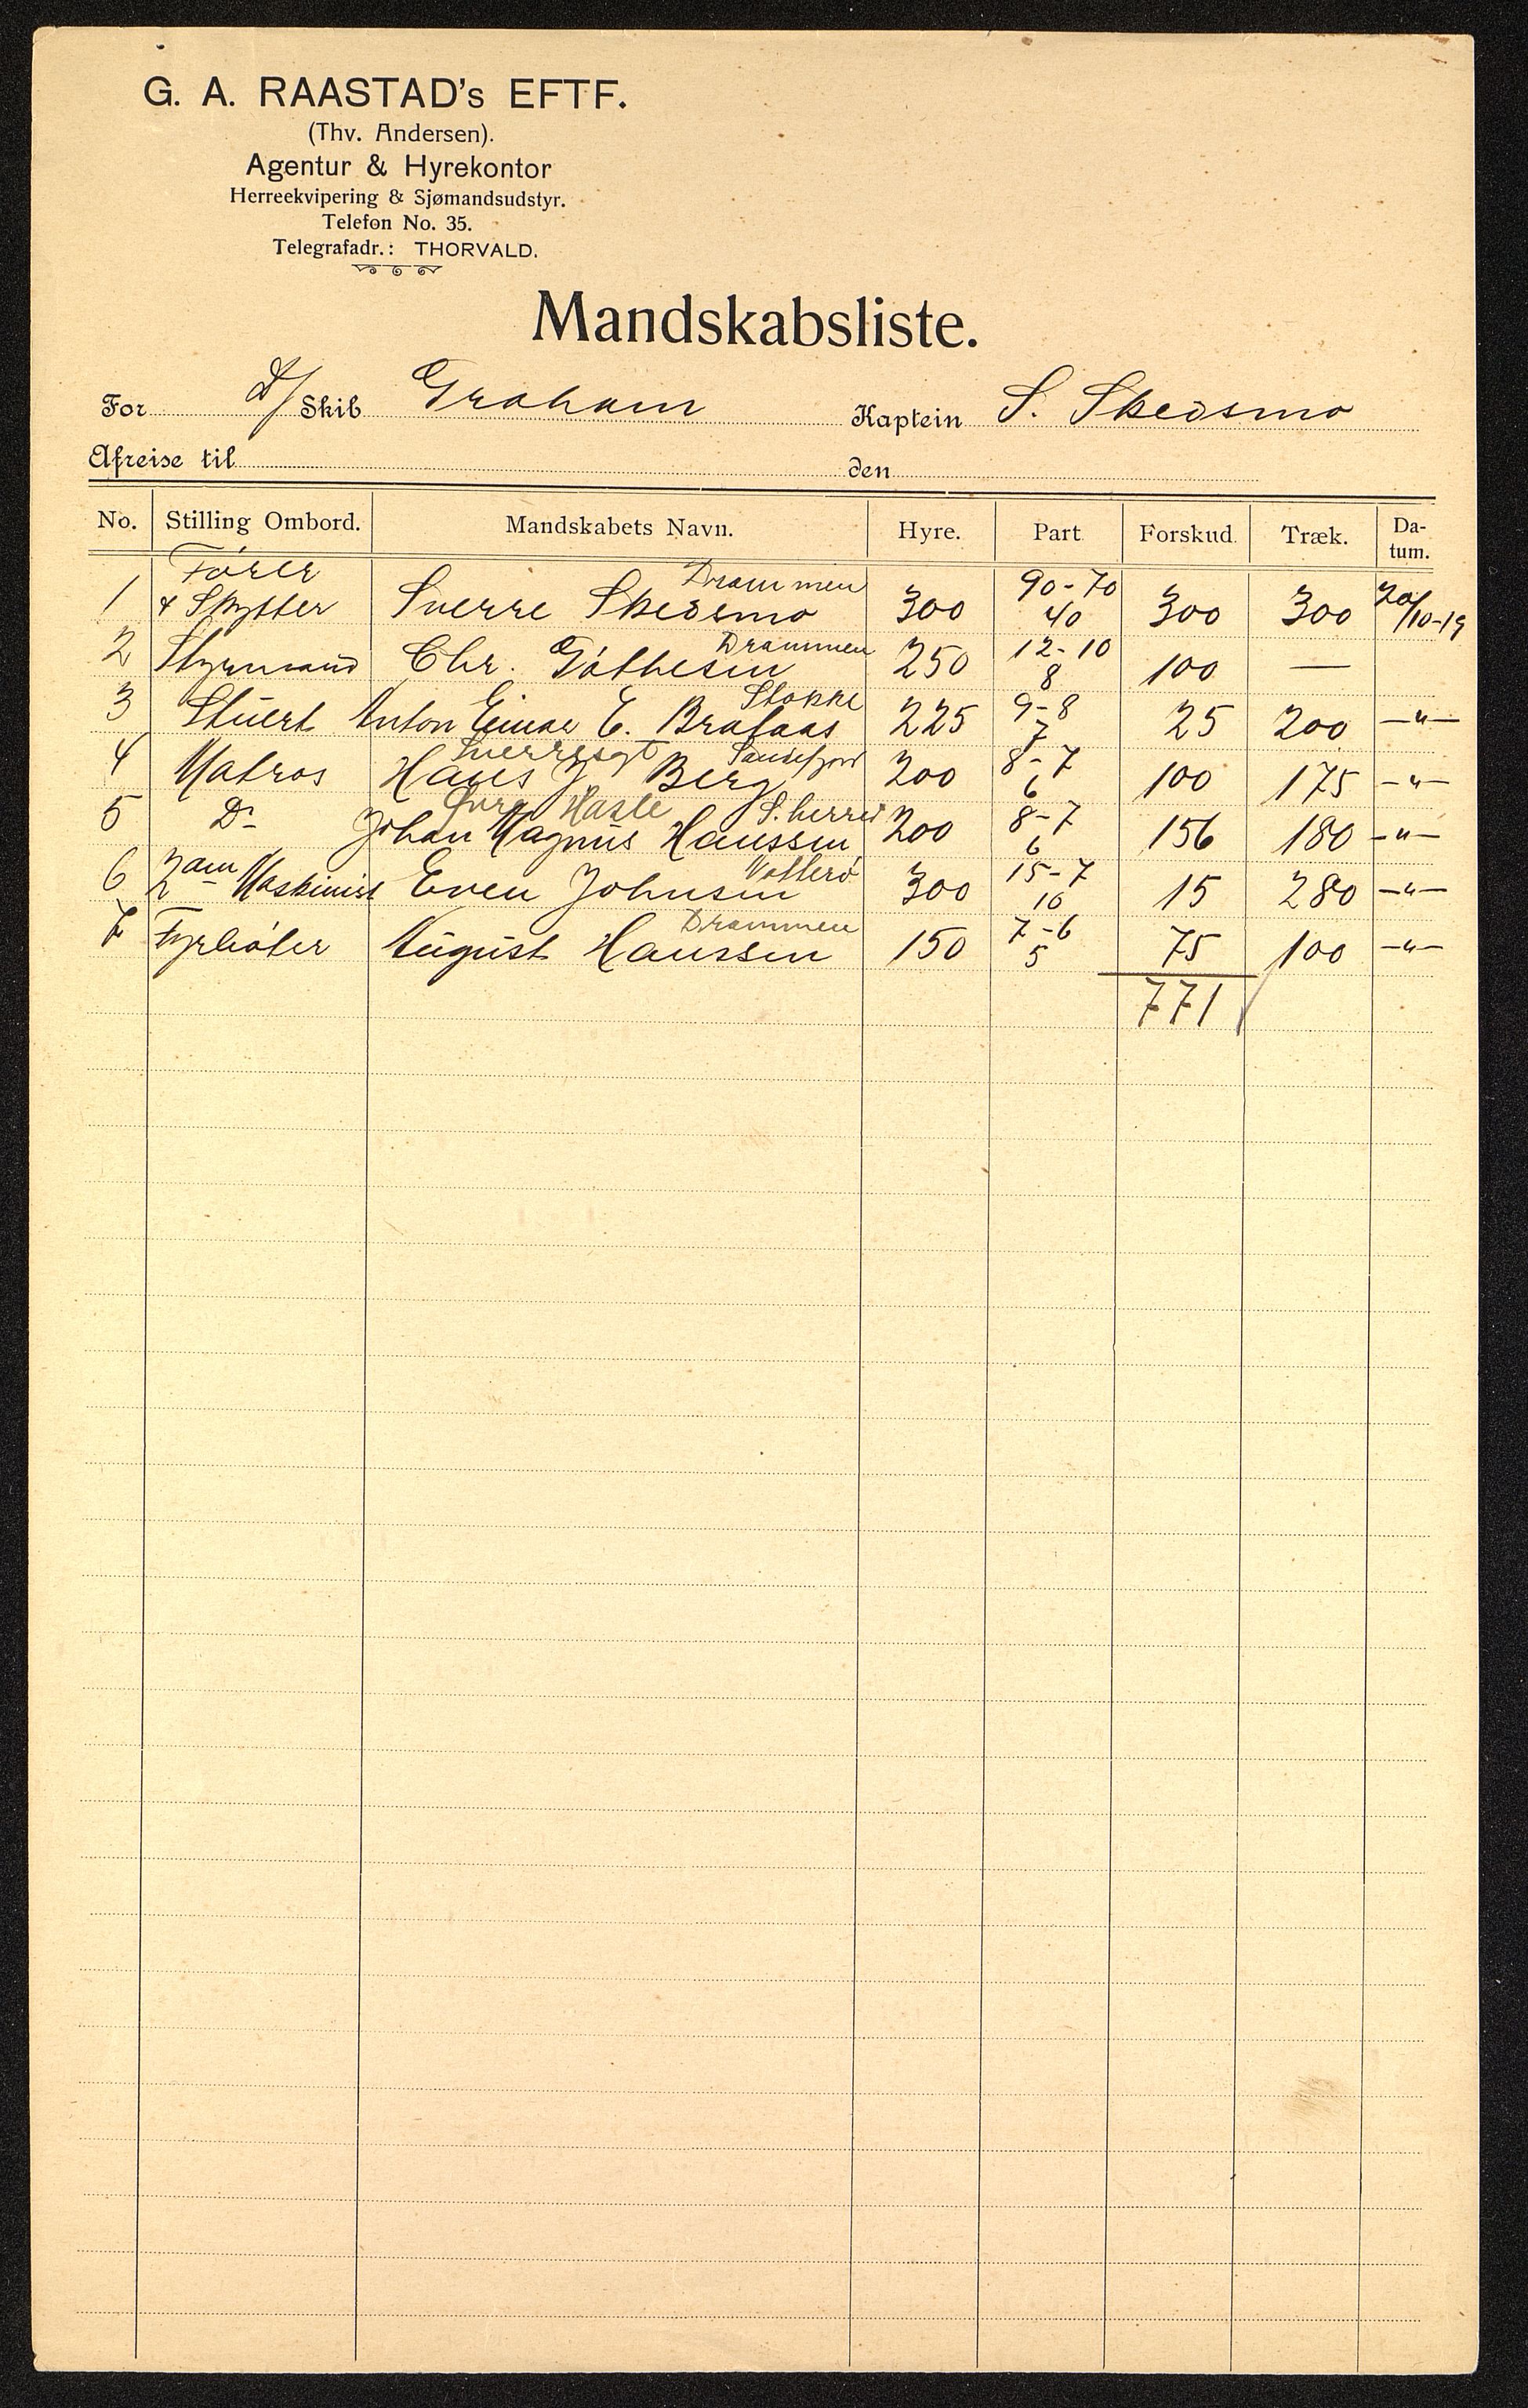 G. A. RAASTAD's EFTF.
(Thv. Andersen).
Agentur & Hyrekontor
Herreekvipering & Sjømandsudstyr.
Telefon No. 35.
Telegrafadr.: THORVALD.
Mandskabsliste.
For D/ Skib Graham Kaptein S. Skedsmo
Afreise til den
No. Stilling Ombord. Mandskabets Navn. Hyre. Part Forskud. Træk. Da-tum.
Förer Drammen 90-70
1 & Skytter Sverre Skedsmo 300 40 300 300 20/10-19
Drammen 12-10
2 Styrmand Chr. Göthesen 250 8 100 —
Stokke 9-8
3 Stuert Anton Einar E. Brafaas 225 7 25 200 -"-
Sverresgt Sandefjord 8-7
4 Matros Hans J Berg 200 6 100 175 -"-
Övre Hasle S.herred 8-7
5 Do Johan Magnus Hanssen 200 6 156 180 -"-
Vollerö 15-7
6 2den Maskinist Even Johnsen 300 10 15 280 -"-
Drammen 7-6
7 Fyrböter August Hanssen 150 5 75 100 -"-
771